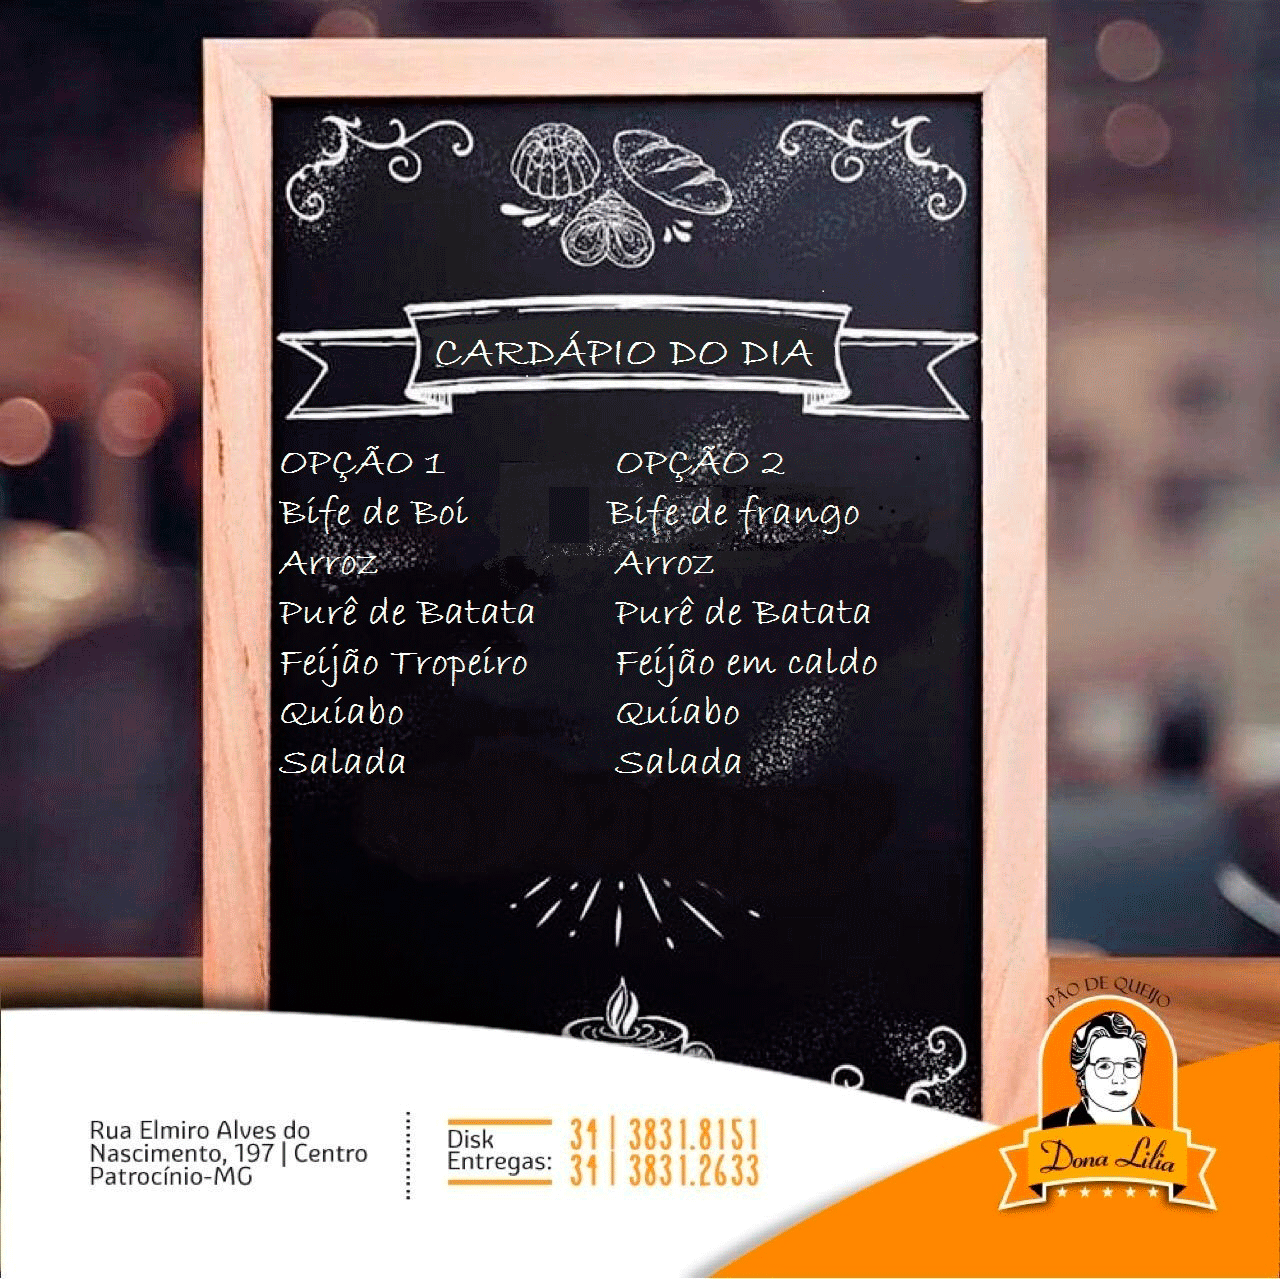 CARDÁPIO DO DIA
OPÇÃO 1
Bife de Boi
Arroz
Purê de Batata
Feijão Tropeiro
Quiabo
Salada
OPÇÃO 2
Bife de frango
Arroz
Purê de Batata
Feijão em caldo
Quiabo
Salada
Rua Elmiro Alves do
Nascimento, 197 | Centro
Patrocínio-MG
Disk
Entregas:
34 | 3831.8151
34 | 3831.2633
PÃO DE QUEIJO
Dona Lilia